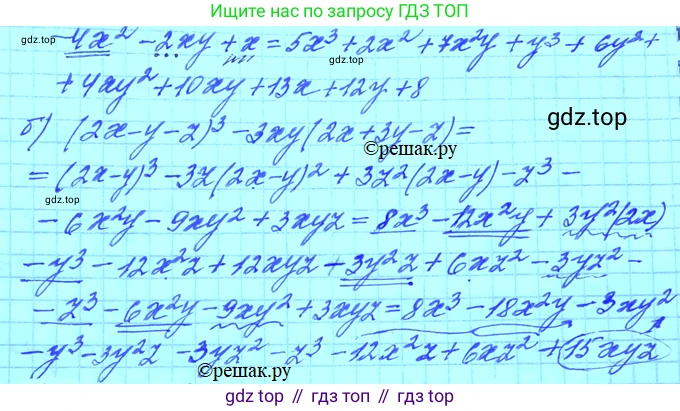 Ищите нас по запросу ГДЗ ТОП
-4x² - 2xy + x = 5x³ + 2x² + 7x²y + y³ + 6y² +
+ 4xy² + 10xy + 13x + 12y + 8
gdz.top
б) (2x-y-z)³ - 3xy(2x+3y-z) =
©решак.ру
= (2x-y)³ - 3z(2x-y)² + 3z²(2x-y) - z³ -
- 6x²y - 9xy² + 3xyz = 8x³ - 12x²y + 3y²(2x)
- y³ - 12x²z + 12xyz + 3y²z + 6xz² - 3yz² -
- z³ - 6x²y - 9xy² + 3xyz = 8x³ - 18x²y - 3xy²
- y³ - 3y²z - 3yz² - z³ - 12x²z + 6xz² + 15xyz
©решак.ру
gdz.top
gdz.top